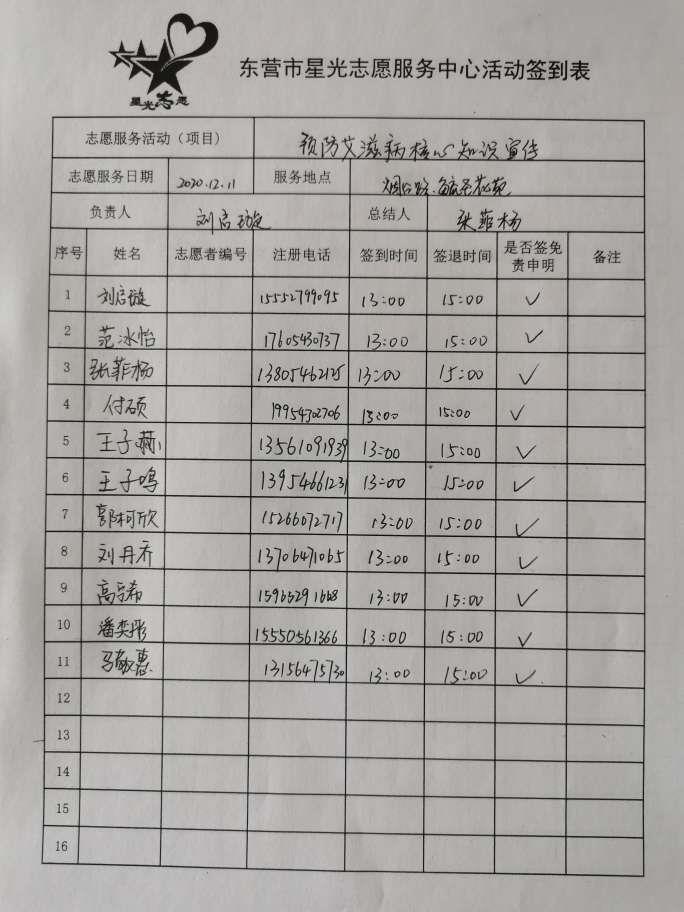 星光志愿
东营市星光志愿服务中心活动签到表
志愿服务活动（项目） 预防艾滋病核心知识宣传
志愿服务日期 2020.12.11 服务地点 烟台路
负责人 刘启璇 总结人 张菲杨
序号 姓名 志愿者编号 注册电话 签到时间 签退时间 是否签免责申明 备注
1 刘启璇 15552799095 13:00 15:00 ✓
2 范冰怡 17605430737 13:00 15:00 ✓
3 张菲杨 13805462125 13:00 15:00 ✓
4 付硕 19954302706 13:00 15:00 ✓
5 王子赫 13561091939 13:00 15:00 ✓
6 王子鸣 13954661231 13:00 15:00 ✓
7 郭柯欣 15266072717 13:00 15:00 ✓
8 刘丹乔 13706471065 13:00 15:00 ✓
9 高子希 13:00 15:00 ✓
10 潘奕彤 15550561366 13:00 15:00 ✓
11 马敬惠 13156475730 13:00 15:00 ✓
12
13
14
15
16